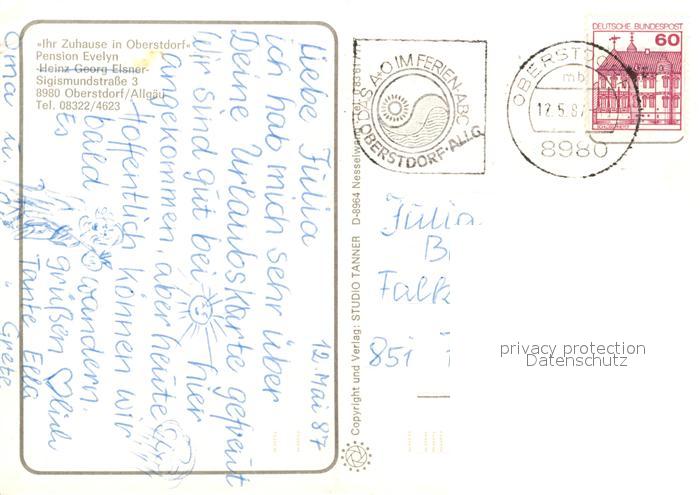 »Ihr Zuhause in Oberstdorf«
Pension Evelyn
Heinz Georg Elsner
Sigismundstraße 3
8980 Oberstdorf/Allgäu
Tel. 08322/4623
12. Mai 87
Liebe Julia
ich hab mich sehr über
Deine Urlaubskarte gefreut
Wir sind gut bei hier
angekommen, aber heute
Hoffentlich können wir
bald wandern.
Es grüßen Dich
Tante Ella
Oma u. Grete
Copyright und Verlag: STUDIO TANNER D-8964 Nesselwang
DAS A+O IM FERIEN-ABC
OBERSTDORF·ALLG.
OBERSTDO
mb
12.5.87
8980
DEUTSCHE BUNDESPOST
60
Julia
B
Falk
851
privacy protection
Datenschutz